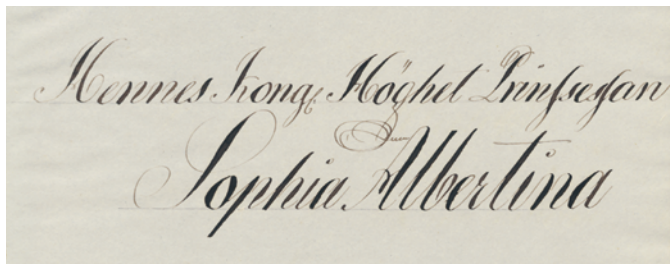 Hennes Kongl Höghet Prinsessan
Sophia Albertina